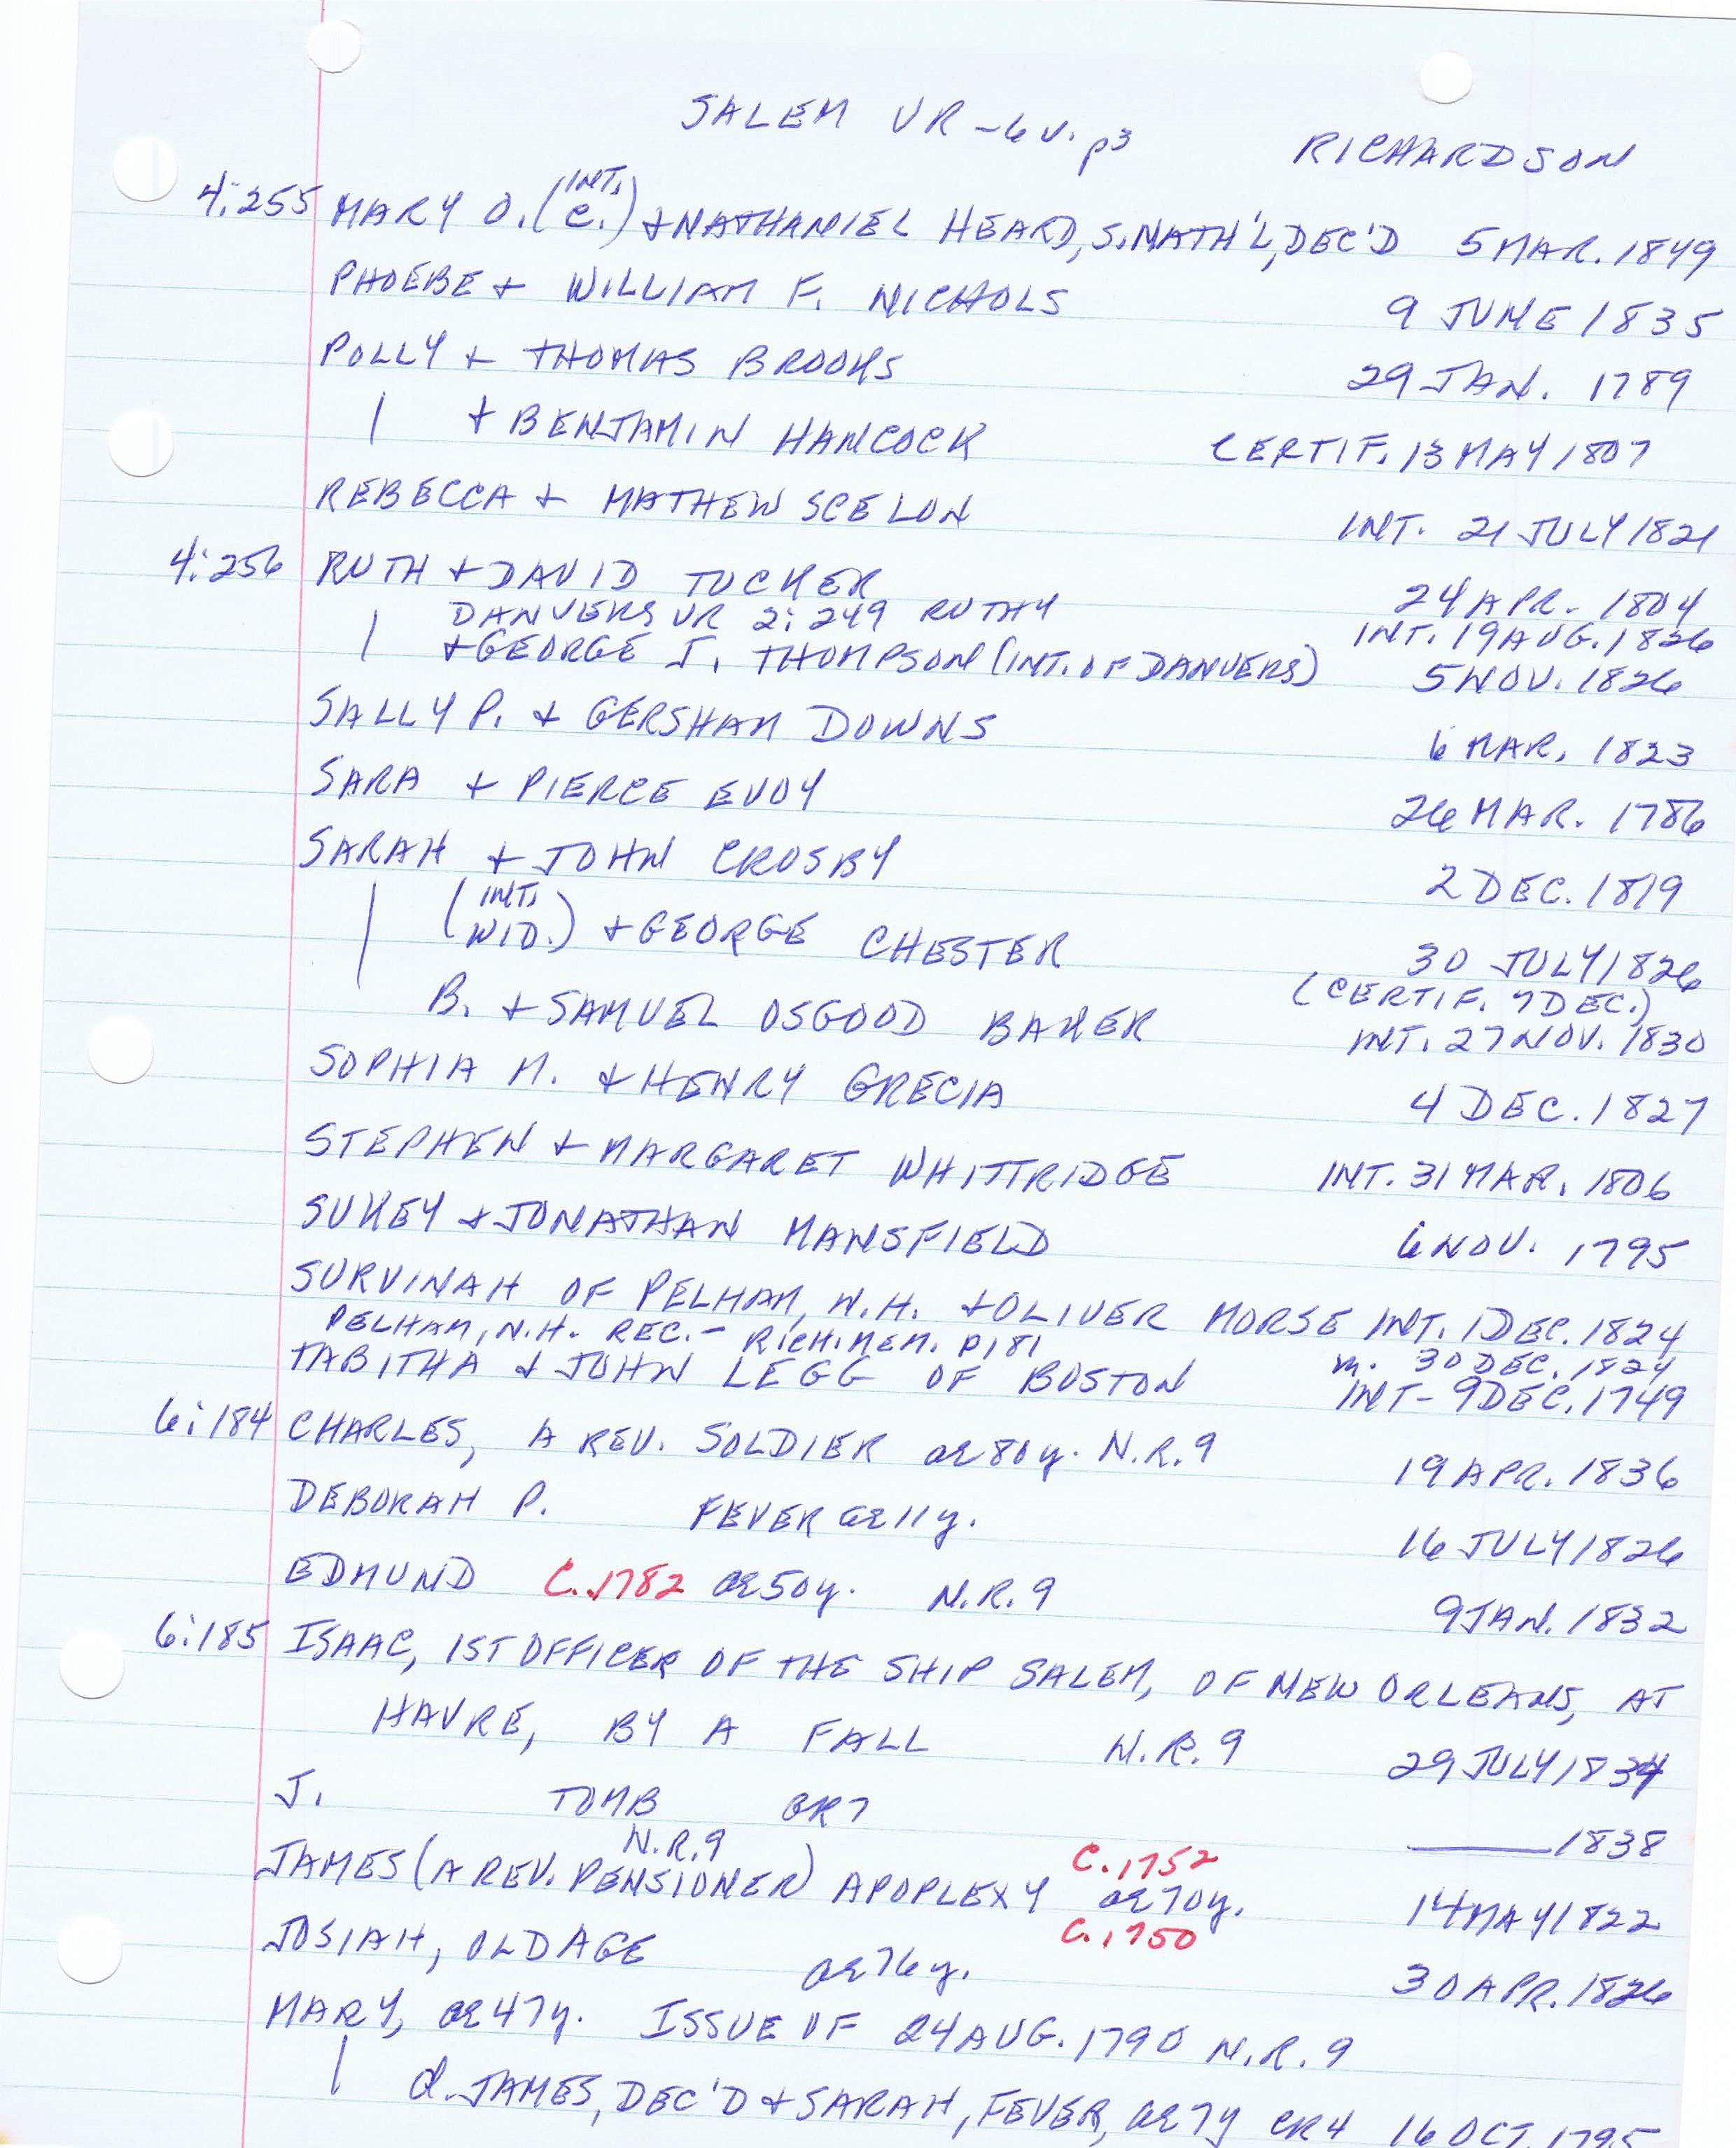 SALEM VR - 6 V. p3 RICHARDSON
4:255 MARY O. (INT. C.) + NATHANIEL HEARD, S. NATH'L, DEC'D 5 MAR. 1849
PHOEBE + WILLIAM F. NICHOLS 9 JUNE 1835
POLLY + THOMAS BROOKS 29 JAN. 1789
| + BENJAMIN HANCOCK CERTIF. 13 MAY 1807
REBECCA + MATHEW SCELON INT. 21 JULY 1821
4:256 RUTH + DAVID TUCKER 24 APR. 1804
DANVERS VR 2:249 RUTHY INT. 19 AUG. 1826
| + GEORGE J. THOMPSON (INT. OF DANVERS) 5 NOV. 1826
SALLY P. + GERSHAM DOWNS 6 MAR. 1823
SARA + PIERCE EVOY 26 MAR. 1786
SARAH + JOHN CROSBY 2 DEC. 1819
| (INT. WID.) + GEORGE CHESTER 30 JULY 1826
(CERTIF. 7 DEC.)
B. + SAMUEL OSGOOD BAKER INT. 27 NOV. 1830
SOPHIA M. + HENRY GRECIA 4 DEC. 1827
STEPHEN + MARGARET WHITTRIDGE INT. 31 MAR. 1806
SUKEY + JONATHAN MANSFIELD 6 NOV. 1795
SURVINAH OF PELHAM, N.H. + OLIVER MORSE INT. 1 DEC. 1824
PELHAM, N.H. REC. - RICH. MEM. P181 m. 30 DEC. 1824
TABITHA + JOHN LEGG OF BOSTON INT - 9 DEC. 1749
6:184 CHARLES, A REV. SOLDIER ae 80y. N.R.9 19 APR. 1836
DEBORAH P. FEVER ae 11y. 16 JULY 1826
EDMUND C. 1782 ae 50y. N.R.9 9 JAN. 1832
6:185 ISAAC, 1ST OFFICER OF THE SHIP SALEM, OF NEW ORLEANS, AT
HAVRE, BY A FALL N.R.9 29 JULY 1834
J. TOMB GR7 —— 1838
N.R.9 C. 1752
JAMES (A REV. PENSIONER) APOPLEXY ae 70y. 14 MAY 1822
C. 1750
JOSIAH, OLD AGE ae 76y. 30 APR. 1826
MARY, ae 47y. ISSUE OF 24 AUG. 1790 N.R.9
| d. JAMES, DEC'D + SARAH, FEVER, ae 7y CR4 16 OCT. 1795